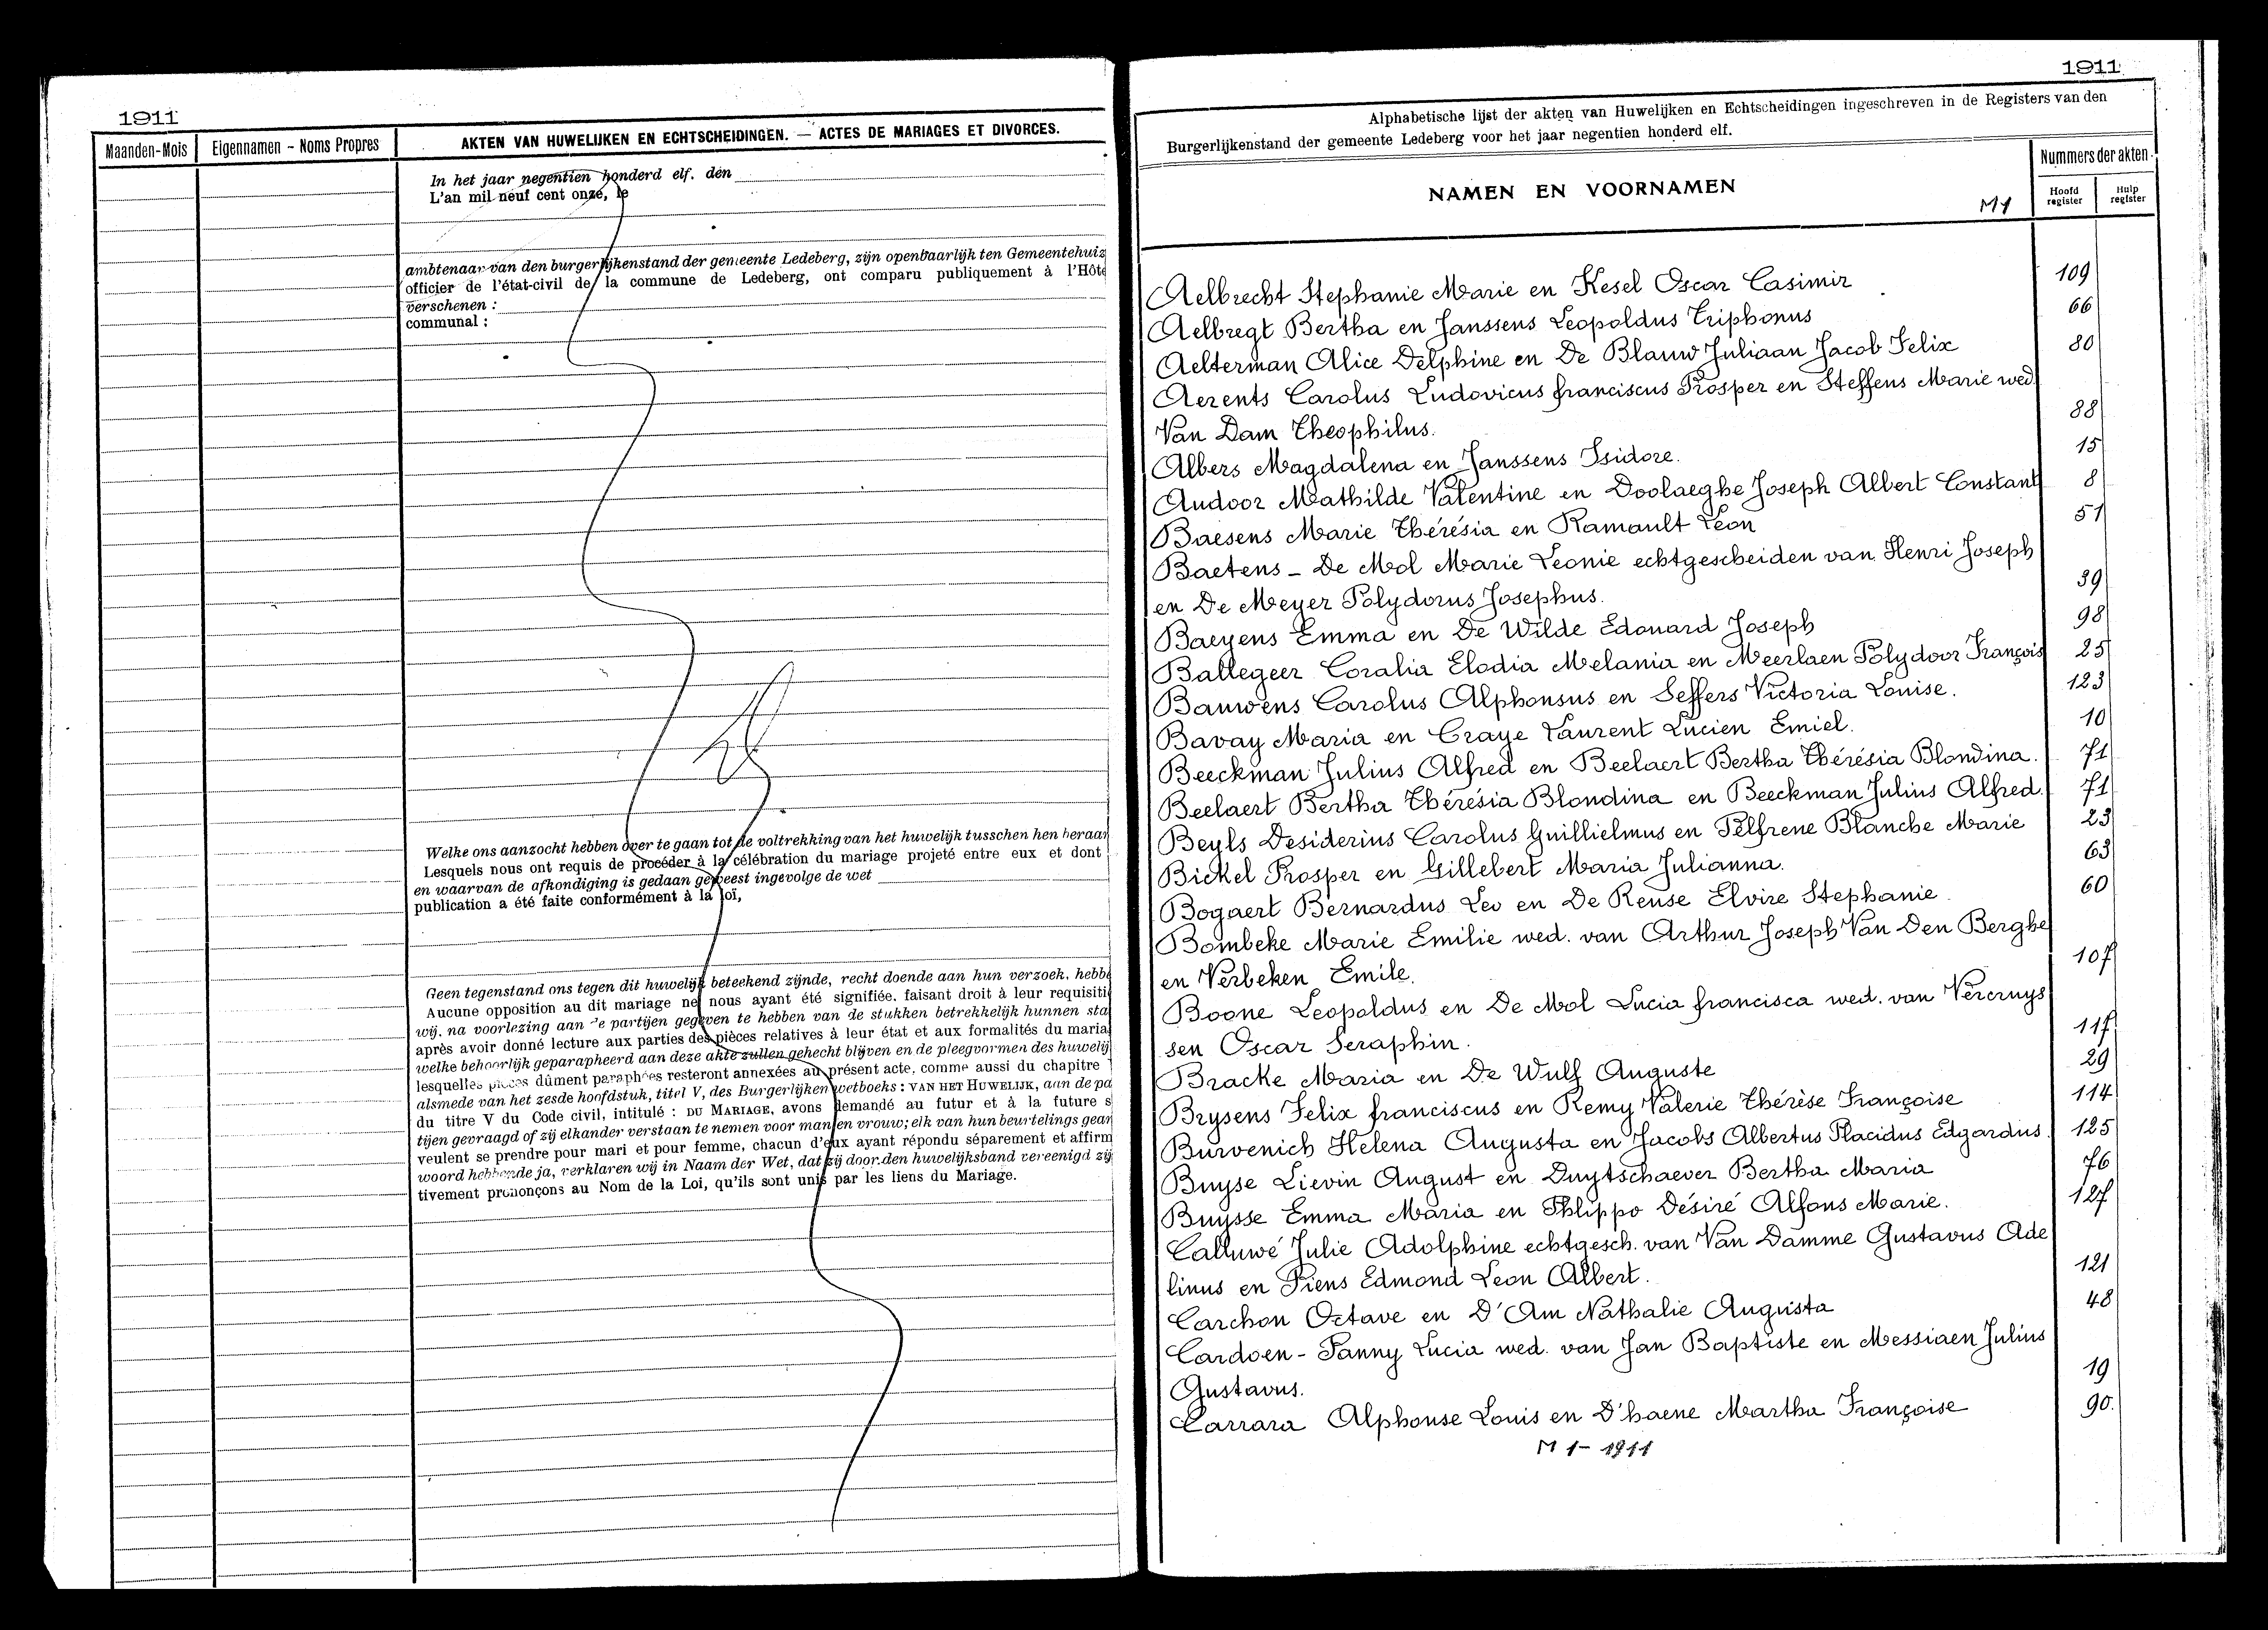 1911
Maanden-Mois
Eigennamen - Noms Propres
AKTEN VAN HUWELIJKEN EN ECHTSCHEIDINGEN. — ACTES DE MARIAGES ET DIVORCES.
In het jaar negentien honderd elf, den
L'an mil neuf cent onze, le
ambtenaar van den burgerlijkenstand der gemeente Ledeberg, zijn openbaarlijk ten Gemeentehuiz
officier de l'état-civil de la commune de Ledeberg, ont comparu publiquement à l'Hôte
verschenen :
communal :
Welke ons aanzocht hebben over te gaan tot de voltrekking van het huwelijk tusschen hen beraar
Lesquels nous ont requis de procéder à la célébration du mariage projeté entre eux et dont
en waarvan de afkondiging is gedaan geweest ingevolge de wet
publication a été faite conformément à la loi,
Geen tegenstand ons tegen dit huwelijk beteekend zijnde, recht doende aan hun verzoek, hebbe
Aucune opposition au dit mariage ne nous ayant été signifiée, faisant droit à leur requisiti
wij, na voorlezing aan de partijen gegeven te hebben van de stukken betrekkelijk hunnen sta
après avoir donné lecture aux parties des pièces relatives à leur état et aux formalités du maria
welke behoorlijk geparapheerd aan deze akte zullen gehecht blijven en de pleegvormen des huwelij
lesquelles pièces dûment paraphées resteront annexées au présent acte, comme aussi du chapitre
alsmede van het zesde hoofdstuk, titel V, des Burgerlijken wetboeks : VAN HET HUWELIJK, aan de pa
du titre V du Code civil, intitulé : DU MARIAGE, avons demandé au futur et à la future s
tijen gevraagd of zij elkander verstaan te nemen voor man en vrouw; elk van hun beurtelings gean
veulent se prendre pour mari et pour femme, chacun d'eux ayant répondu séparement et affirm
woord hebbende ja, verklaren wij in Naam der Wet, dat zij door den huwelijksband vereenigd zij
tivement prononçons au Nom de la Loi, qu'ils sont unis par les liens du Mariage.
1911
Alphabetische lijst der akten van Huwelijken en Echtscheidingen ingeschreven in de Registers van den
Burgerlijkenstand der gemeente Ledeberg voor het jaar negentien honderd elf.
NAMEN EN VOORNAMEN
M1
Nummers der akten
Hoofd register
Hulp register
Aelbrecht Stephanie Marie en Kesel Oscar Casimir 109
Aelbregt Bertha en Janssens Leopoldus Triphonus 66
Aelterman Alice Delphine en De Blauw Juliaan Jacob Felix 80
Aerents Carolus Ludovicus franciscus Prosper en Steffens Marie wed.
Van Dam Theophilus. 88
Albers Magdalena en Janssens Isidore. 15
Audoor Mathilde Valentine en Doolaeghe Joseph Albert Constant 8
Baesens Marie Thérésia en Ramault Léon 51
Baetens - De Mol Marie Leonie echtgescheiden van Henri Joseph
en De Meyer Polydorus Josephus. 39
Baeyens Emma en De Wilde Edouard Joseph 98
Ballegeer Coralia Elodia Melania en Meerlaen Polydoor François 25
Bauwens Carolus Alphonsus en Seffers Victoria Louise. 123
Bavay Maria en Craye Laurent Lucien Emiel. 10
Beeckman Julius Alfred en Beelaert Bertha Thérésia Blondina. 71
Beelaert Bertha Thérésia Blondina en Beeckman Julius Alfred. 71
Beyls Desiderius Carolus Guillielmus en Pelfrene Blanche Marie 23
Bickel Prosper en Gillebert Maria Julianna. 63
Bogaert Bernardus Leo en De Reuse Elvire Stephanie. 60
Bombeke Marie Emilie wed. van Arthur Joseph Van Den Berghe
en Verbeken Emile. 107
Boone Leopoldus en De Mol Lucia francisca wed. van Vercruys
sen Oscar Seraphin. 117
Bracke Maria en De Wulf Auguste 29
Brysens Felix franciscus en Remy Valerie Thérèse Françoise 114
Burvenich Helena Augusta en Jacobs Albertus Placidus Edgardus. 125
Buyse Lievin August en Duytschaever Bertha Maria 76
Buysse Emma Maria en Phlippo Désiré Alfons Marie. 127
Calluwé Julie Adolphine echtgesch. van Van Damme Gustavus Ade
linus en Piens Edmond Leon Albert. 121
Carchon Octave en D'Am Nathalie Augusta 48
Cardoen - Fanny Lucia wed. van Jan Baptiste en Messiaen Julius
Gustavus. 19
Carrara Alphonse Louis en D'haene Martha Françoise 90.
M 1 - 1911